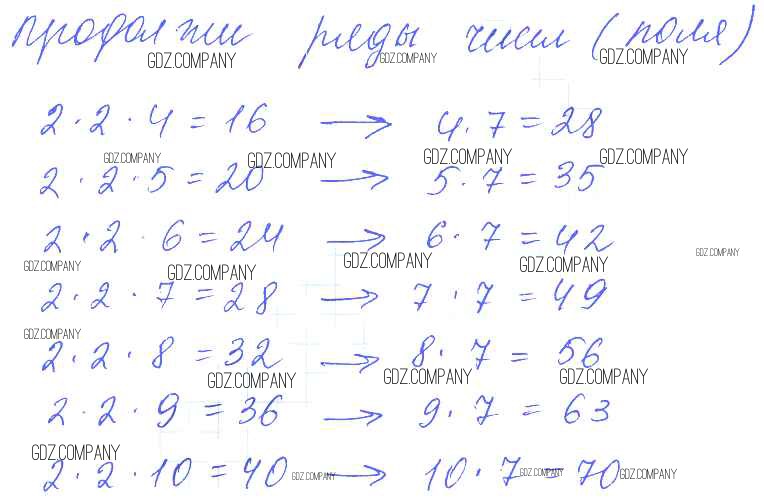 продолжи ряды чисел (поля)
GDZ.COMPANY GDZ.COMPANY GDZ.COMPANY
2 · 2 · 4 = 16 → 4 · 7 = 28
GDZ.COMPANY GDZ.COMPANY GDZ.COMPANY GDZ.COMPANY
2 · 2 · 5 = 20 → 5 · 7 = 35
2 · 2 · 6 = 24 → 6 · 7 = 42
GDZ.COMPANY GDZ.COMPANY GDZ.COMPANY GDZ.COMPANY GDZ.COMPANY
2 · 2 · 7 = 28 → 7 · 7 = 49
GDZ.COMPANY
2 · 2 · 8 = 32 → 8 · 7 = 56
GDZ.COMPANY GDZ.COMPANY GDZ.COMPANY
2 · 2 · 9 = 36 → 9 · 7 = 63
GDZ.COMPANY
2 · 2 · 10 = 40 → 10 · 7 = 70
GDZ.COMPANY GDZ.COMPANY GDZ.COMPANY